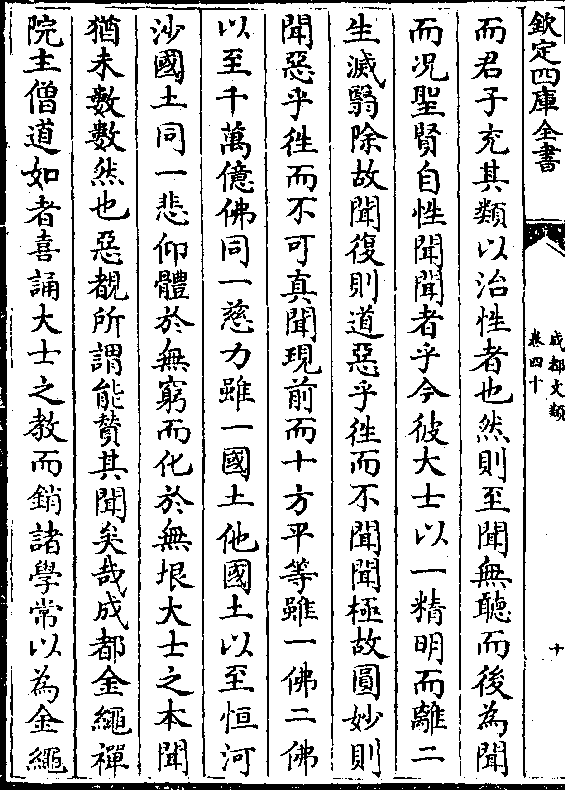 欽定四庫全書
成都文類
卷四十
十
而君子充其類以治性者也然則至聞無聽而後為聞
而况聖賢自性聞聞者乎今彼大士以一精明而離二
生滅翳除故聞復則道惡乎徃而不聞聞極故圓妙則
聞惡乎徃而不可真聞現前而十方平等雖一佛二佛
以至千萬億佛同一慈力雖一國土他國土以至恒河
沙國土同一悲仰體於無窮而化於無垠大士之本聞
猶未數數然也惡覩所謂能贊其聞矣哉成都金繩禪
院主僧道如者喜誦大士之教而銷諸學常以為金繩